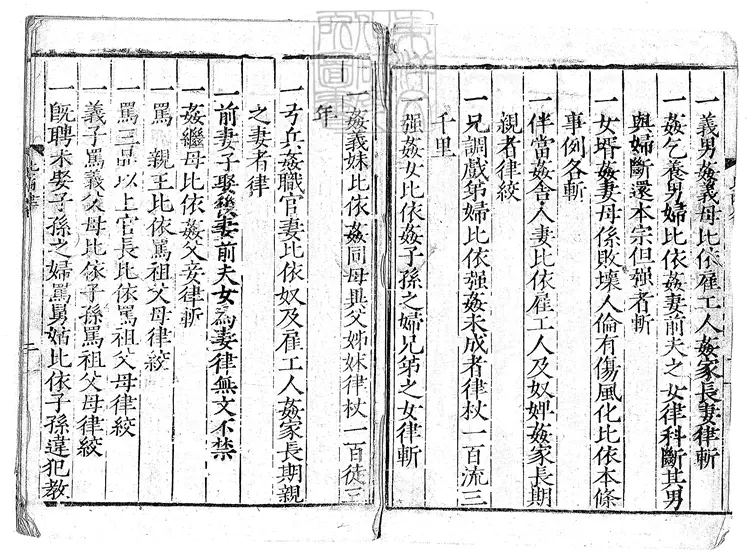 一義男姦義母比依雇工人姦家長妻律斬
一姦乞養男婦比依姦妻前夫之女律科斷其男
與婦斷還本宗但强者斬
一女壻姦妻母係敗壞人倫有傷風化比依本條
事例各斬
一伴當姦舍人妻比依雇工人及奴婢姦家長期
親者律絞
一兄調戲弟婦比依强姦未成者律杖一百流三
千里
一强姦女比依姦子孫之婦兄弟之女律斬
一姦義妹比依姦同母異父姊妹律杖一百徒三
年
一弓兵姦職官妻比依奴及雇工人姦家長期親
之妻者律
一前妻子娶後妻前夫女為妻律無文不禁
一姦繼母比依姦父妾律斬
一罵 親王比依罵祖父母律絞
一罵三品以上官長比依罵祖父母律絞
一義子罵義父母比依子孫罵祖父母律絞
一旣聘未娶子孫之婦罵舅姑比依子孫違犯教
二